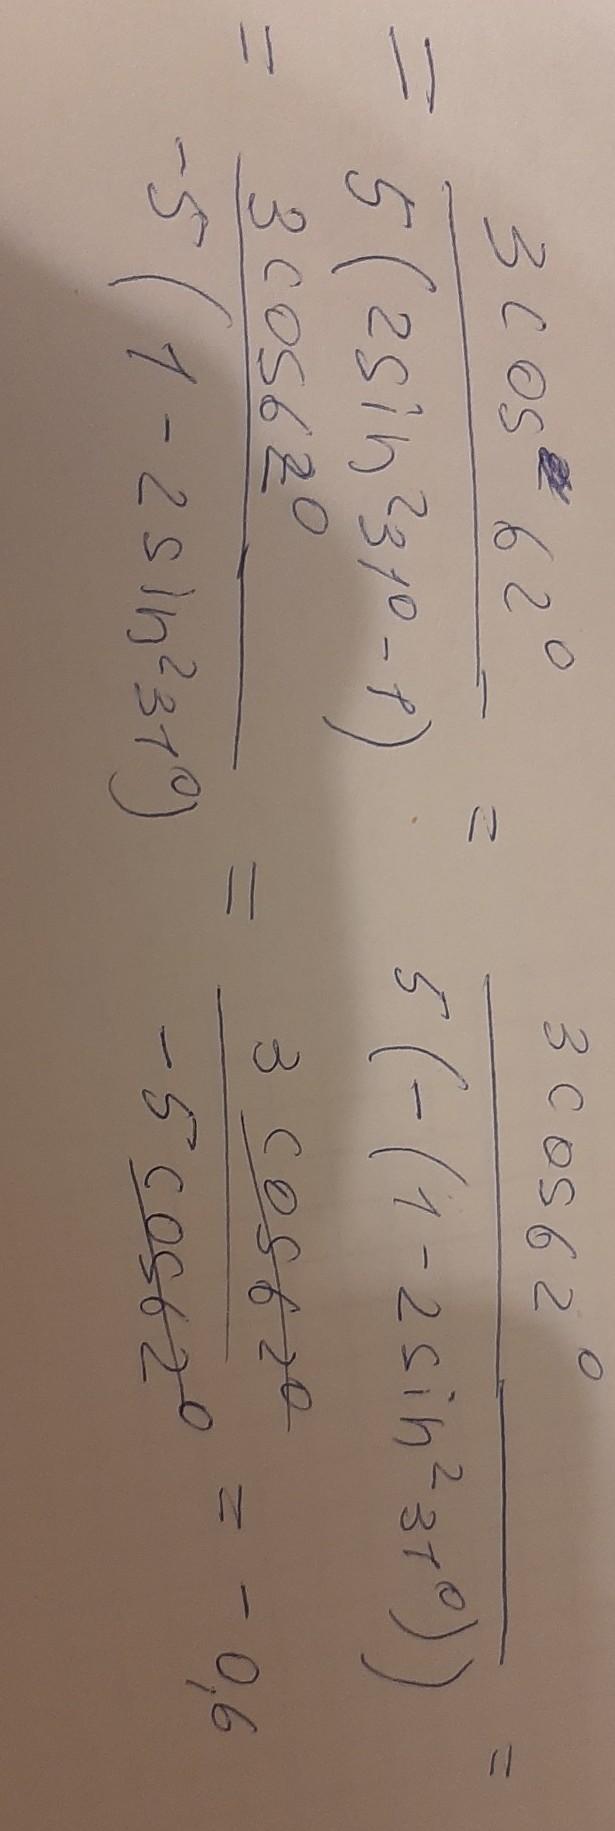 = 3cos62° / 5(2sin²31°-1) = 3cos62° / 5(-(1-2sin²31°)) =
= 3cos62° / -5(1-2sin²31°) = 3cos62° / -5cos62° = -0,6